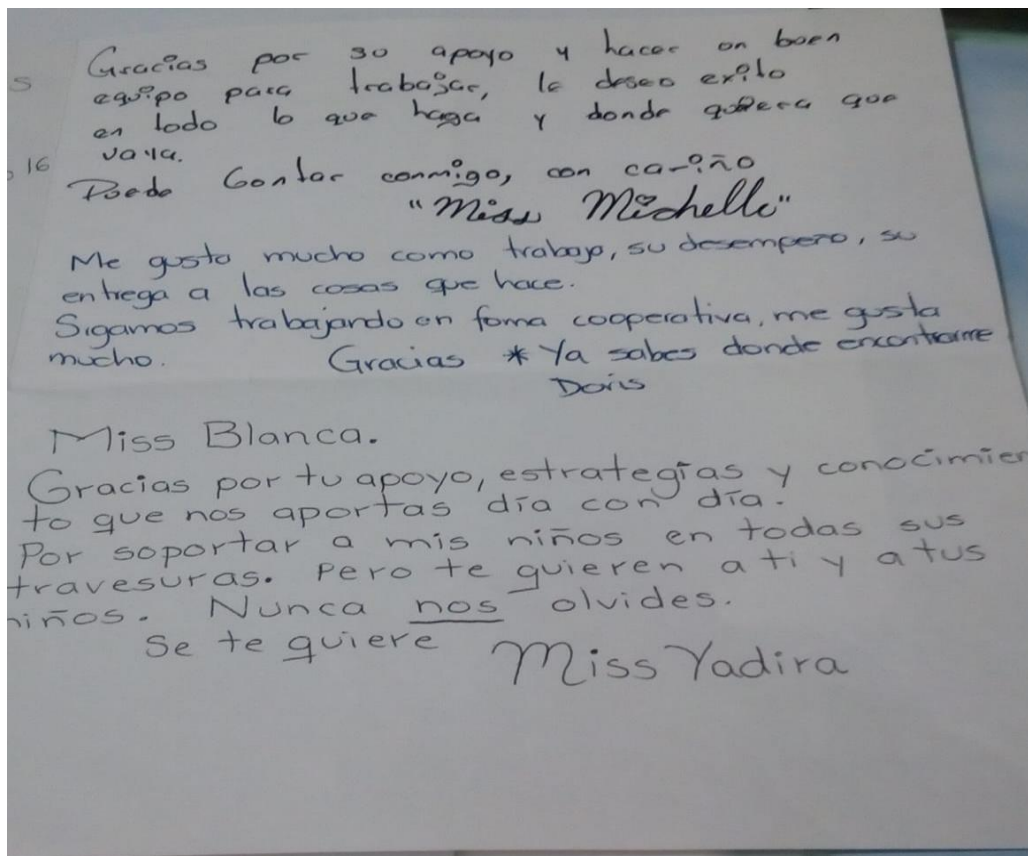 Gracias por su apoyo y hacer un buen
equipo para trabajar, le deseo exito
en todo lo que haga y donde quiera que
vaya.
16
Puede Contar conmigo, con cariño
"Miss Michelle"
Me gusta mucho como trabaja, su desempeño, su
entrega a las cosas que hace.
Sigamos trabajando en foma cooperativa, me gusta
mucho. Gracias * Ya sabes donde encontrarme
Doris
Miss Blanca.
Gracias por tu apoyo, estrategias y conocimien
to que nos aportas día con día.
Por soportar a mis niños en todas sus
travesuras. Pero te quieren a ti y a tus
niños. Nunca nos olvides.
Se te quiere Miss Yadira